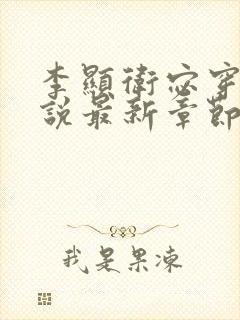 李顯衛宓穿
說最新章節
我是果凍